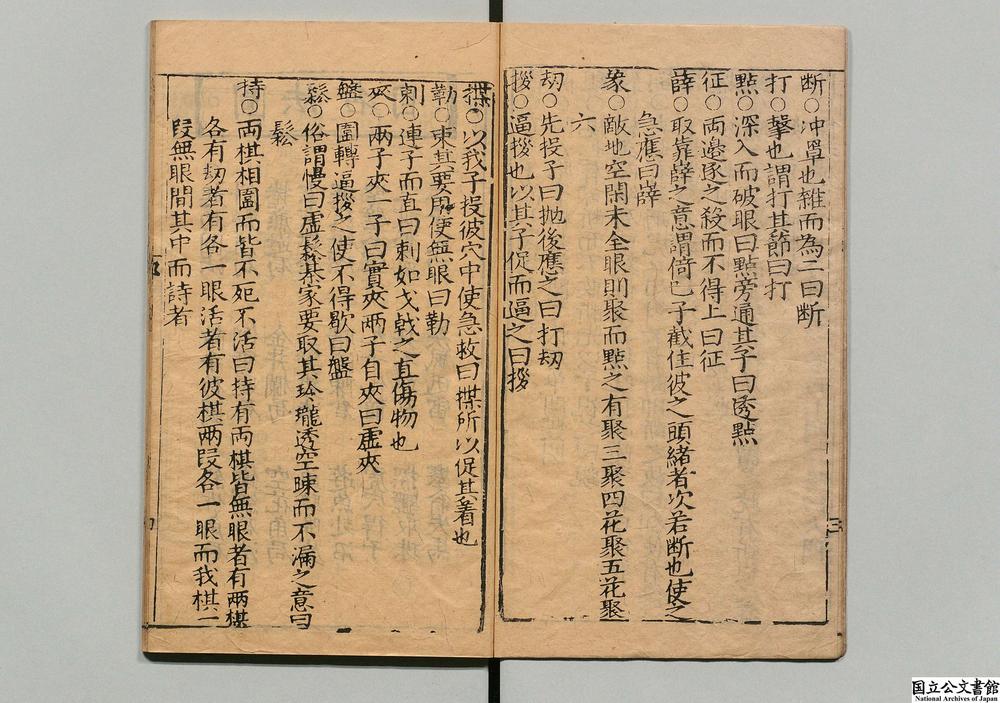 断○冲罩也雖而為二曰断
打○擊也謂打其節曰打
點○深入而破眼曰點旁通其子曰透點
征○両邉逐之殺而不得上曰征
薛○取靠薛之意謂倚已子截住彼之頭緒者次若断也使之
急應曰薛
𧰼○敵地空閑未全眼則聚而點之有聚三聚四花聚五花聚
六
刧○先投子曰抛後應之曰打刧
拶○逼拶也以其子促而逼之曰拶
揲○以我子投彼穴中使急救曰揲所以促其着也
勒○束其要用便無眼曰勒
刺○連子而直曰刺如戈戟之直傷物也
夾○兩子夾一子曰實夾兩子自夾曰虚夾
盤○圍轉逼拶之使不得歇曰盤
鬆○俗謂慢曰虚鬆棊家要取其玲瓏透空踈而不漏之意曰
鬆
持○両棋相圍而皆不死不活曰持有両棋皆無眼者有两棋
各有刧者有各一眼活者有彼棋两段各一眼而我棋一
段無眼間其中而詩者
国立公文書館
National Archives of Japan